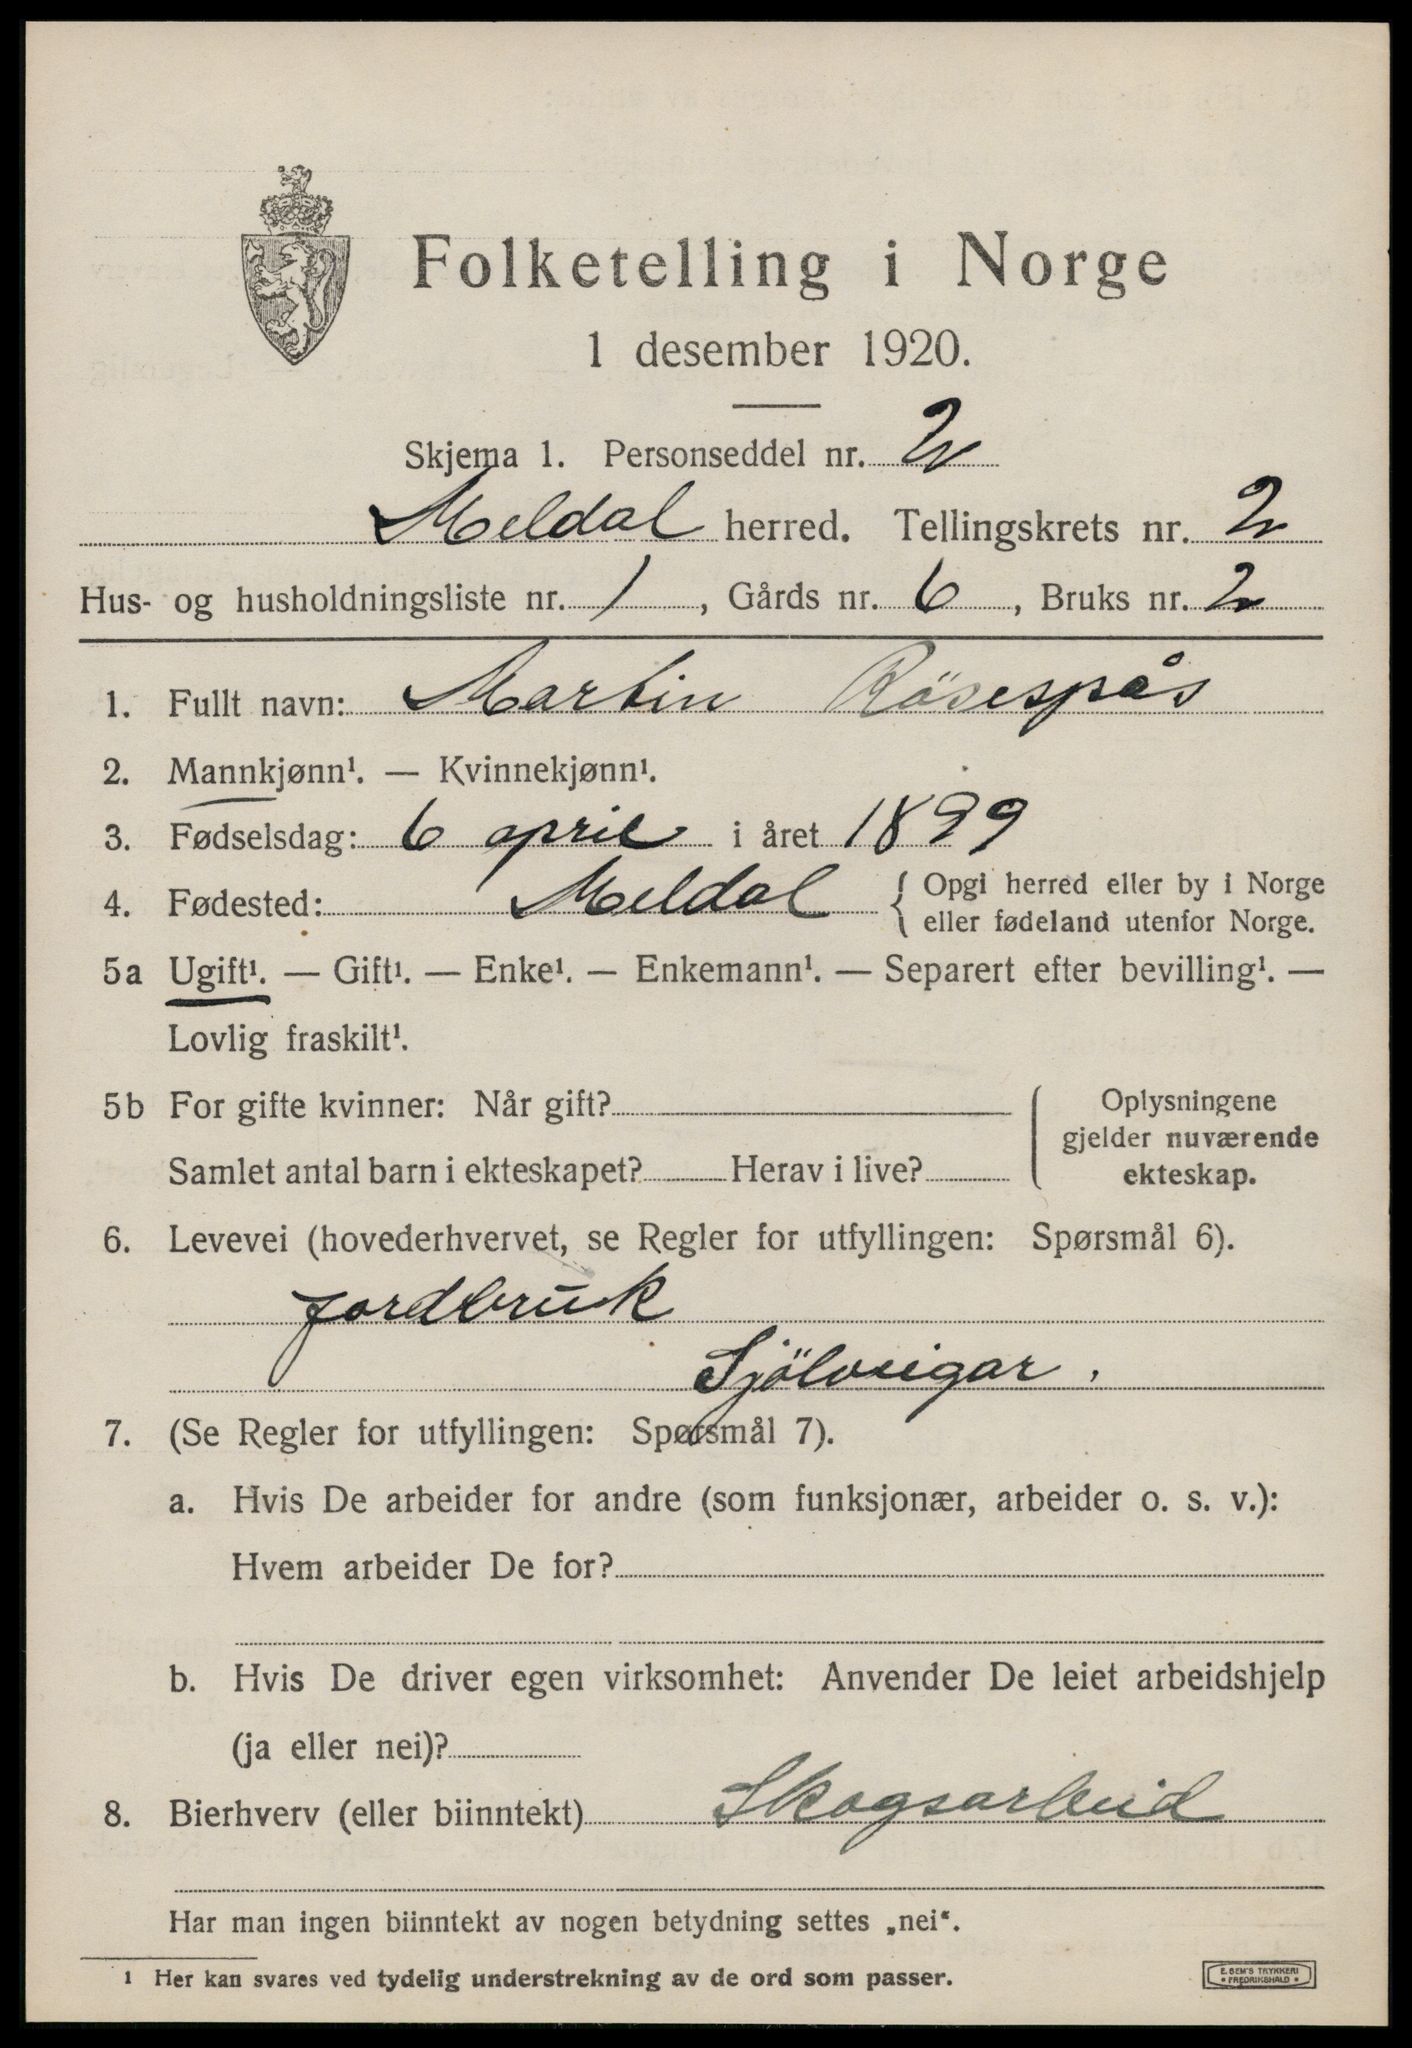 Folketelling i Norge
1 desember 1920.
Skjema 1. Personseddel nr. 2
Meldal herred. Tellingskrets nr. 2
Hus- og husholdningsliste nr. 1, Gårds nr. 6, Bruks nr. 2
1. Fullt navn: Martin Rösespås
2. Mannkjønn¹. — Kvinnekjønn¹.
3. Fødselsdag: 6 april i året 1899
4. Fødested: Meldal { Opgi herred eller by i Norge
eller fødeland utenfor Norge.
5a Ugift¹. — Gift¹. — Enke¹. — Enkemann¹. — Separert efter bevilling¹. —
Lovlig fraskilt¹.
5b For gifte kvinner: Når gift?
Samlet antal barn i ekteskapet? Herav i live?
Oplysningene
gjelder nuværende
ekteskap.
6. Levevei (hovederhvervet, se Regler for utfyllingen: Spørsmål 6).
jordbruk
Sjölveigar.
7. (Se Regler for utfyllingen: Spørsmål 7).
a. Hvis De arbeider for andre (som funksjonær, arbeider o. s. v.):
Hvem arbeider De for?
b. Hvis De driver egen virksomhet: Anvender De leiet arbeidshjelp
(ja eller nei)?
8. Bierhverv (eller biinntekt) Skogsarbeid
Har man ingen biinntekt av nogen betydning settes „nei“.
1 Her kan svares ved tydelig understrekning av de ord som passer.
E. SEM'S TRYKKERI
• FREDRIKSHALD •